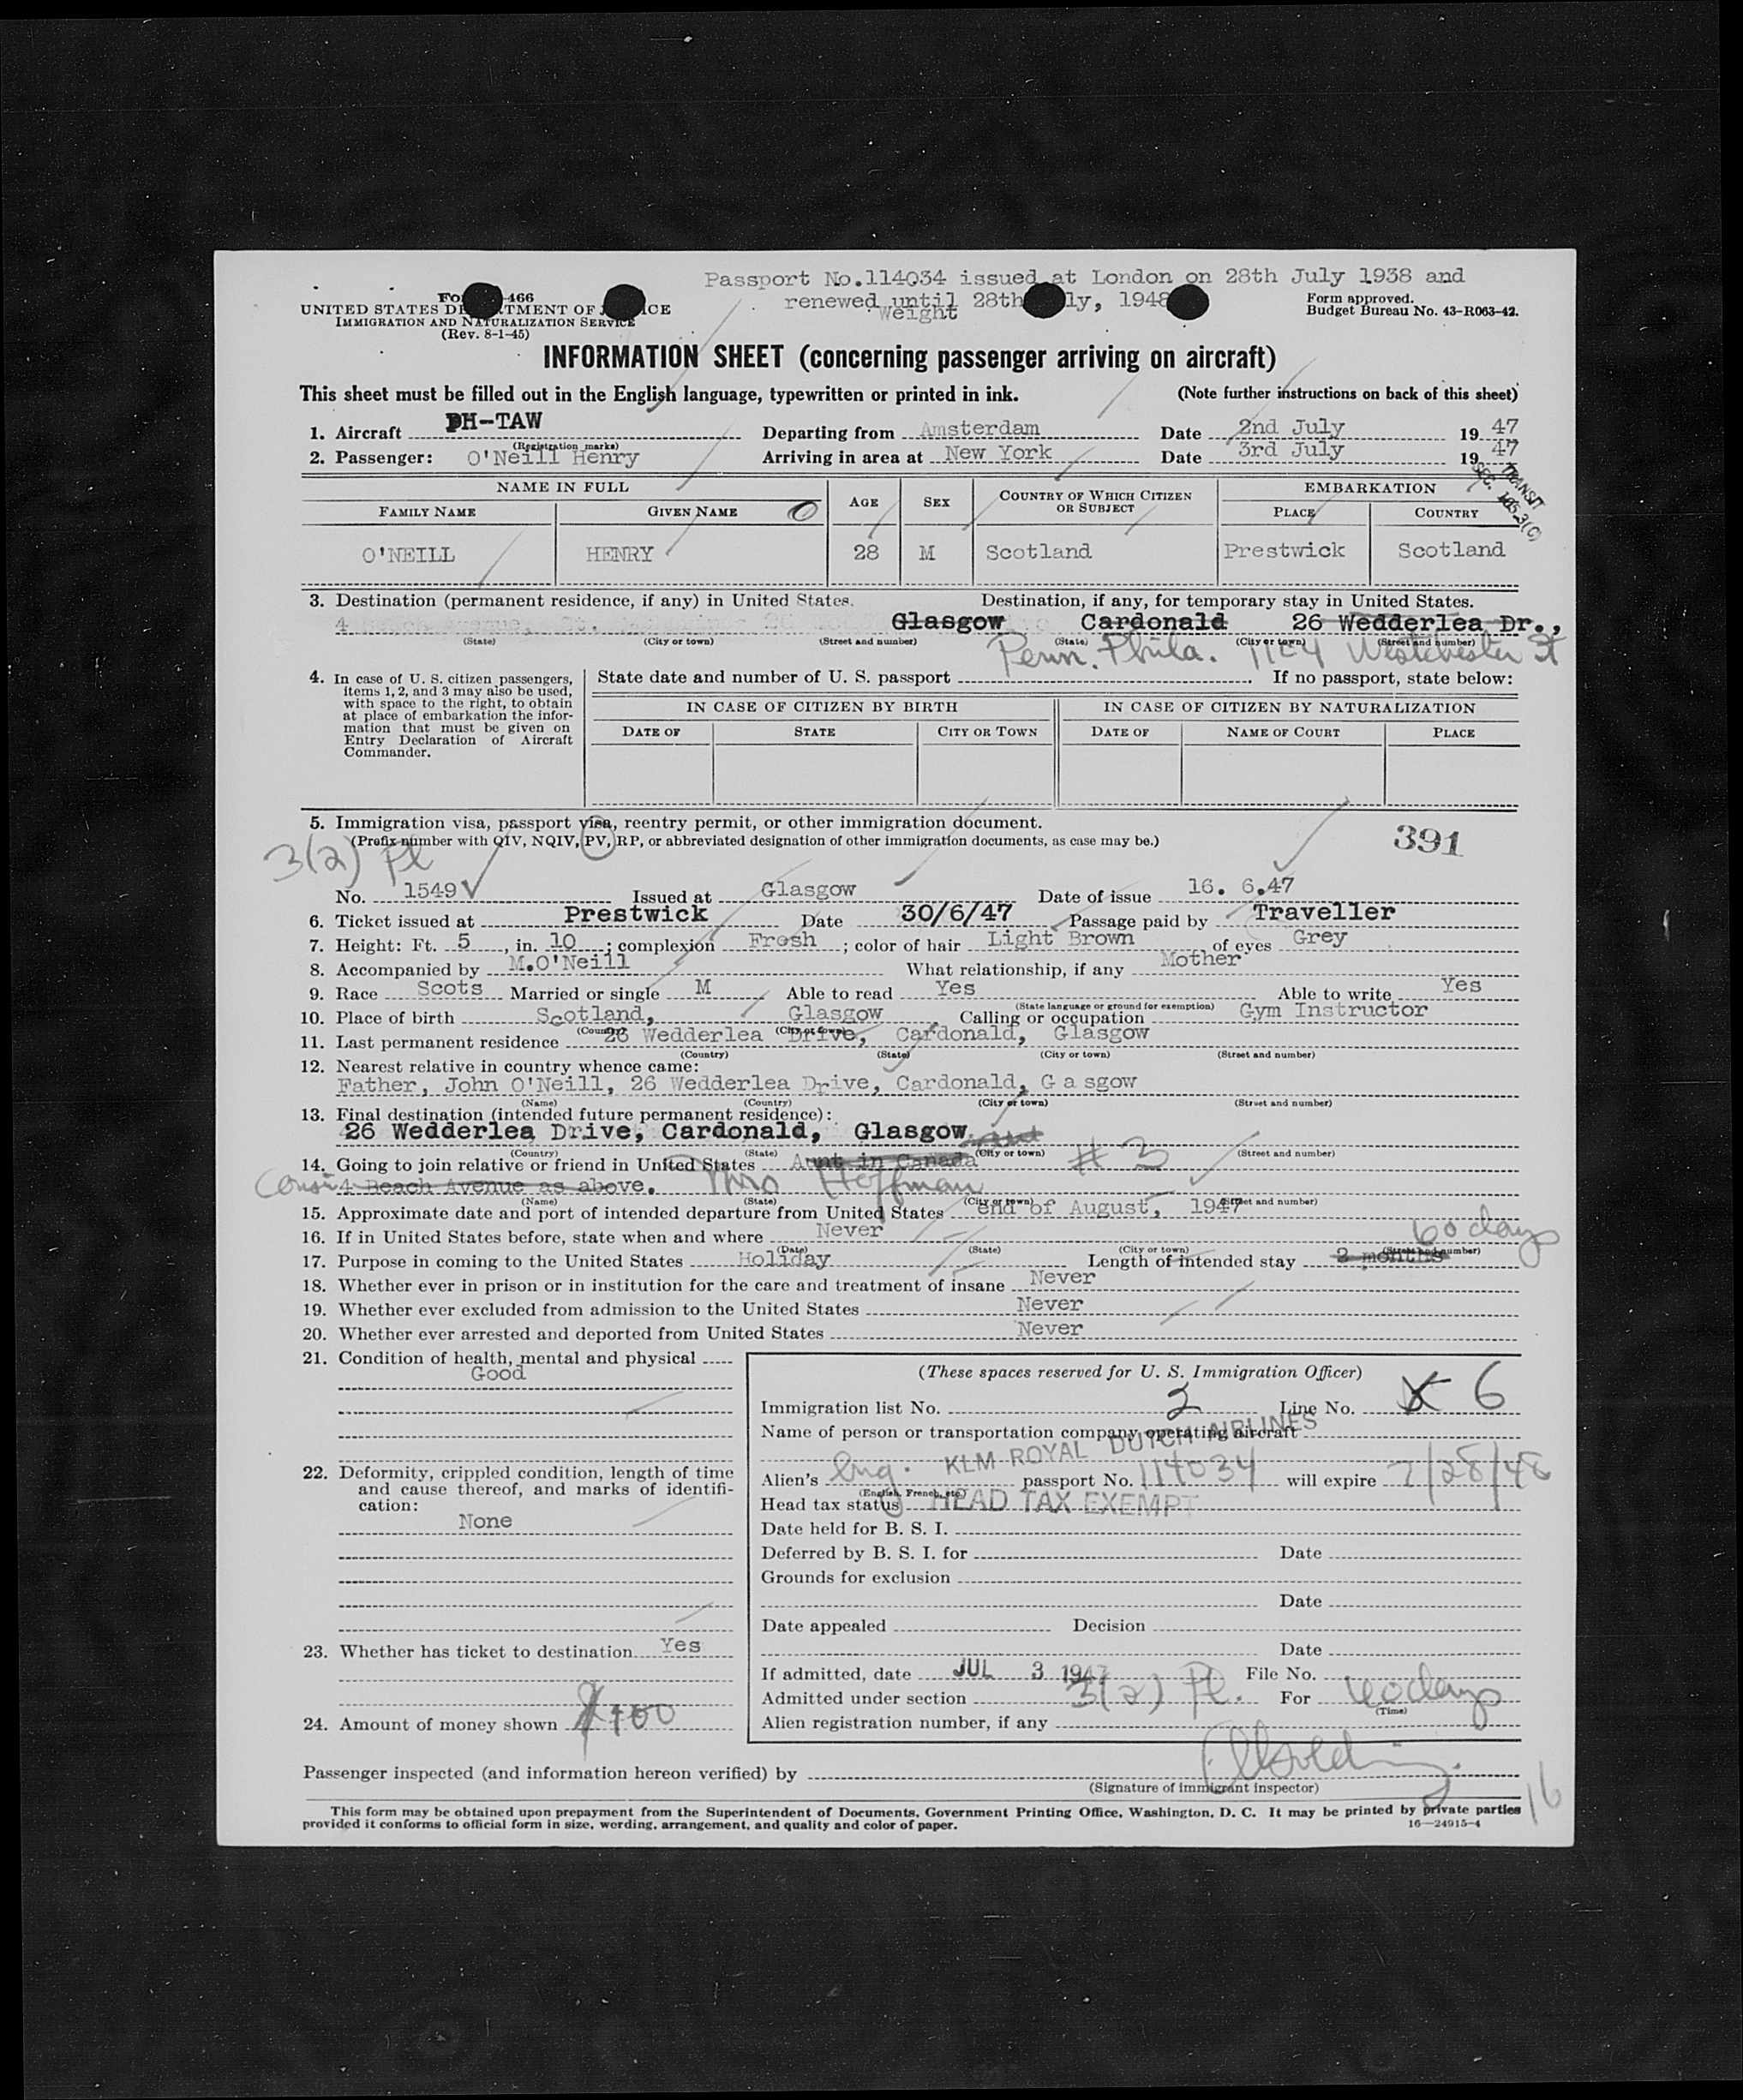 Passport No.114034 issued at London on 28th July 1938 and
renewed until 28th ly, 1948
Weight
Fo -466
UNITED STATES DE TMENT OF ICE
IMMIGRATION AND NATURALIZATION SERVICE
(Rev. 8-1-45)
Form approved.
Budget Bureau No. 43-R063-42.
INFORMATION SHEET (concerning passenger arriving on aircraft)
This sheet must be filled out in the English language, typewritten or printed in ink. (Note further instructions on back of this sheet)
1. Aircraft PH-TAW Departing from Amsterdam Date 2nd July 1947
(Registration marks)
2. Passenger: O'Neill Henry Arriving in area at New York Date 3rd July 1947
TRANSIT
SEC. 105-3(C)
NAME IN FULL AGE SEX COUNTRY OF WHICH CITIZEN OR SUBJECT EMBARKATION
FAMILY NAME GIVEN NAME O PLACE COUNTRY
O'NEILL HENRY 28 M Scotland Prestwick Scotland
3. Destination (permanent residence, if any) in United States. Destination, if any, for temporary stay in United States.
4 Glasgow Cardonald 26 Wedderlea Dr.,
(State) (City or town) (Street and number) (State) (City or town) (Street and number)
Penn. Phila. Westchester St
4. In case of U. S. citizen passengers, items 1, 2, and 3 may also be used, with space to the right, to obtain at place of embarkation the information that must be given on Entry Declaration of Aircraft Commander.
State date and number of U. S. passport If no passport, state below:
IN CASE OF CITIZEN BY BIRTH IN CASE OF CITIZEN BY NATURALIZATION
DATE OF STATE CITY OR TOWN DATE OF NAME OF COURT PLACE
5. Immigration visa, passport visa, reentry permit, or other immigration document.
(Prefix number with QIV, NQIV, PV, RP, or abbreviated designation of other immigration documents, as case may be.) 391
3(2) Pl
No. 1549 Issued at Glasgow Date of issue 16. 6.47
6. Ticket issued at Prestwick Date 30/6/47 Passage paid by Traveller
7. Height: Ft. 5, in. 10; complexion Fresh; color of hair Light Brown of eyes Grey
8. Accompanied by M.O'Neill What relationship, if any Mother
9. Race Scots Married or single M Able to read Yes Able to write Yes
(State language or ground for exemption)
10. Place of birth Scotland, Glasgow Calling or occupation Gym Instructor
(Country) (City or town)
11. Last permanent residence 26 Wedderlea Drive, Cardonald, Glasgow
(Country) (State) (City or town) (Street and number)
12. Nearest relative in country whence came:
Father, John O'Neill, 26 Wedderlea Drive, Cardonald, G a sgow
(Name) (Country) (City or town) (Street and number)
13. Final destination (intended future permanent residence):
26 Wedderlea Drive, Cardonald, Glasgow
(Country) (State) (City or town) (Street and number)
14. Going to join relative or friend in United States Aunt in Canada # 3
4 Beach Avenue as above. Mrs Hoffman
(Name) (State) (City or town) (Street and number)
15. Approximate date and port of intended departure from United States end of August, 1947
16. If in United States before, state when and where Never
(Date) (State) (City or town) (Street and number)
60 days
17. Purpose in coming to the United States Holiday Length of intended stay 2 months
18. Whether ever in prison or in institution for the care and treatment of insane Never
19. Whether ever excluded from admission to the United States Never
20. Whether ever arrested and deported from United States Never
21. Condition of health, mental and physical
Good
22. Deformity, crippled condition, length of time and cause thereof, and marks of identification:
None
23. Whether has ticket to destination Yes
24. Amount of money shown $100
(These spaces reserved for U. S. Immigration Officer)
Immigration list No. 2 Line No. 6
Name of person or transportation company operating aircraft
KLM ROYAL DUTCH AIRLINES
Alien's Eng. passport No. 114034 will expire 7/28/48
(English, French, etc.)
Head tax status HEAD TAX EXEMPT
Date held for B. S. I.
Deferred by B. S. I. for Date
Grounds for exclusion
Date
Date appealed Decision
Date
If admitted, date JUL 3 1947 File No.
Admitted under section 3(2) Pl. For 60 days
(Time)
Alien registration number, if any
Passenger inspected (and information hereon verified) by
(Signature of immigrant inspector)
16
This form may be obtained upon prepayment from the Superintendent of Documents, Government Printing Office, Washington, D. C. It may be printed by private parties
provided it conforms to official form in size, wording, arrangement, and quality and color of paper. 16—24915-4